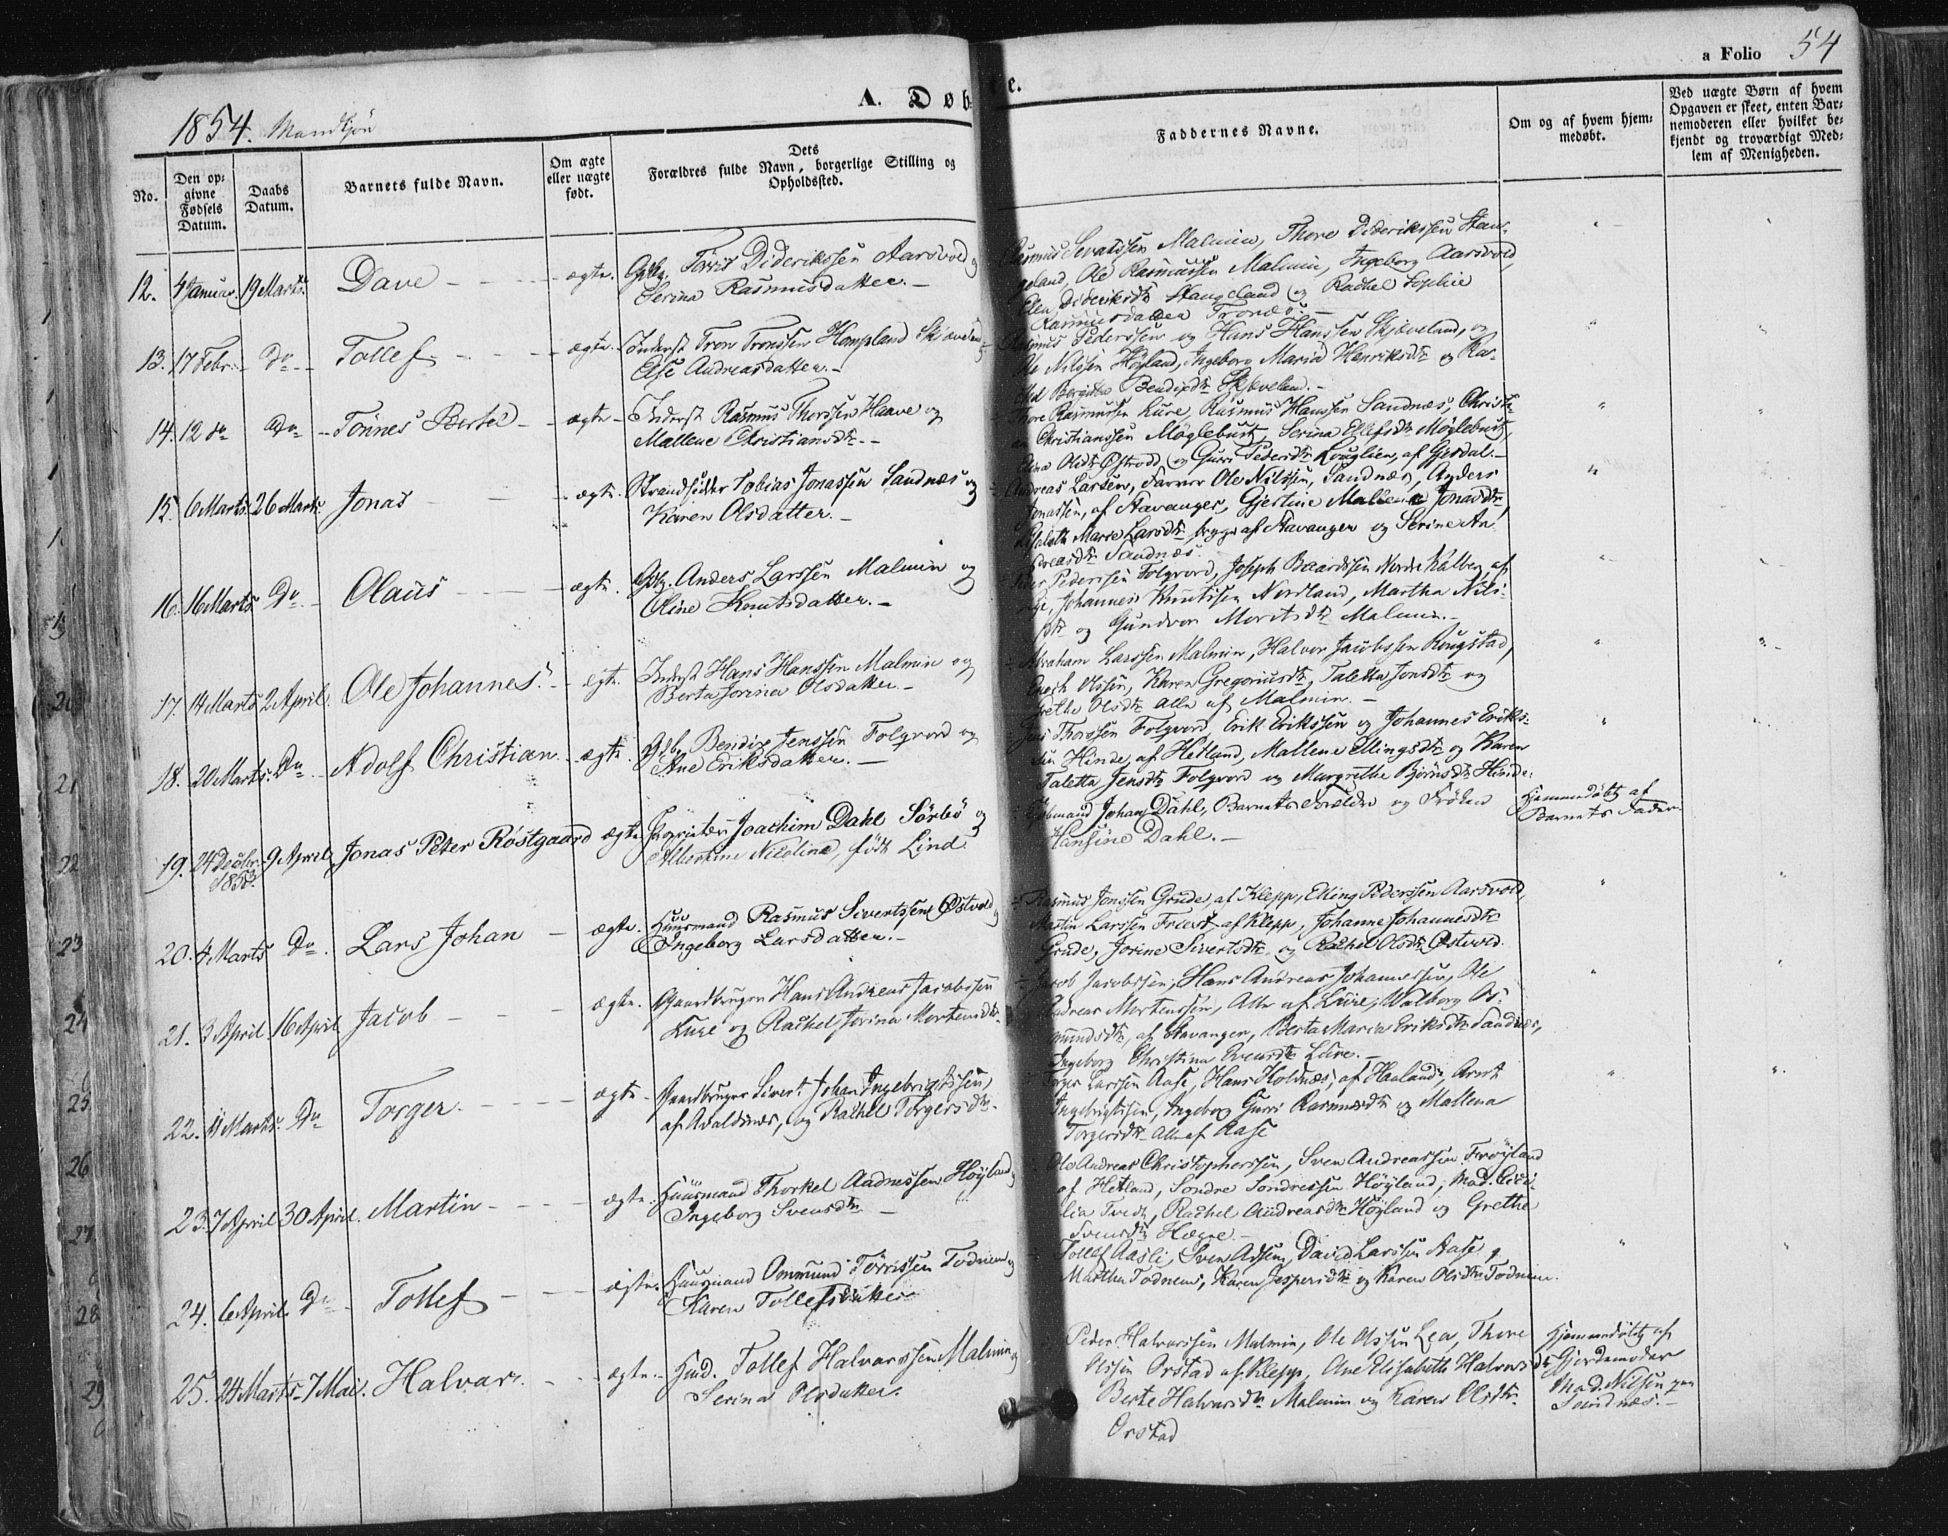 a Folio 54
1854. Mandkjøn
A. Døbte.
No.
Den opgivne Fødsels Datum.
Daabs Datum.
Barnets fulde Navn.
Om ægte eller uægte født.
Forældres fulde Navn, borgerlige Stilling og Dets Opholdssted.
Faddernes Navne.
Om og af hvem hjemmedøbt.
Ved uægte Børn af hvem Opgaven er skeet, enten Barnemoderen eller hvilket bekjendt og troværdigt Medlem af Menigheden.
12. 4 Januar. 19 Marts. Dave ægte.
Tørris Dideriksen Aarsvold og
Serina Rasmusdatter.
Rasmus Sevaldsen Malmin, Thore Dideriksen Stan-
geland, Ole Rasmussen Malmin, Ingeborg Aarsvold,
Elen Dideriksdtr Stangeland og Rachel Sophie
Rasmusdatter Tronæs.
13. 17 Febr. Do Tollef ægte.
Inderst Tron Tronsen Hompland Skjæveland
Else Andreasdatter.
Rasmus Pedersen og Hans Hansen Skjæveland, og
Ole Nilsen Høyland, Ingeborg Maria Henriksdtr og Ra-
chel Bergitte Bendixdtr Skjæveland.
14. 12 do Do Tønnes Bertel ægte
Inderst Rasmus Thorsen Haave og
Mallene Christiansdtr.
Thore Rasmussen Lure, Rasmus Hanssen Sandnæs, Christi-
an Christianssen Møglebust, Serina Ellefsdtr Møglebust,
Elina Olsdtr Østrodd og Guri Pedersdtr Louglien, af Gjesdal.
15. 6 Marts. 26 Marts Jonas ægte.
Strandsidder Tobias Jonassen Sandnæs og
Karen Olsdatter.
Andreas Larsen, Farver Ole Nilssen, Sandnæs, Anders
Jonassen, af Stavanger, Gjertine Mallene Jonasdtr
Marie Larsdtr, begge af Stavanger og Serine An-
dreasdtr Sandnæs.
16. 16 Marts Do Olaus ægte.
Anders Larssen Malmin og
Oline Knutsdatter.
Peder Pedersen Folgerød, Joseph Baardsen Nordre Kalberg, af
Johannes Knutsen Nordland, Martha Nils-
dtr og Gundvor Moritsdtr Malmin.
17. 14 Marts 2 April. Ole Johannes. ægte.
Inderst Hans Hanssen Malmin og
Berta Jorina Olsdatter.
Abraham Larssen Malmin, Halvor Jacobssen Rougstad,
Enoch Olsen, Karen Gregoriusdtr, Taletta Jonsdtr og
Grethe Olsdtr alle af Malmin.
18. 20 Marts. Do Adolf Christian. ægte.
Gbr Bendix Jenssen Folgerod og
Ane Eriksdatter.
Jens Thorssen Folgerod Erik Erikssen og Johannes Eriks-
sen Hinde, af Hetland, Mallene Ellingsdtr og Karen
Taletta Jensdtr Folgerod og Margrethe Bjørnsdtr Hinde.
19. 24 Decbr. 1853. 9 April Jonas Peter Røstgaard ægte.
Proprietær Joachim Dahl Sørbø og
Albertine Nicoline, født Lind
Kjøbmand Johan Dahl, Barnets Forældre og Frøken
Hansine Dahl.
Hjemmedøbt af
Barnets Fader.
20. 4 Marts Do. Lars Johan ægte.
Huusmand Rasmus Sivertssen Østvold og
Ingeborg Larsdatter.
Rasmus Jonssen Grude, af Klepp, Elling Pederssen Aarsvold,
Martin Larssen af Klepp, Johanne Johannesdtr
Grude, Jorine Sivertsdtr og Rachel Olsdtr Østvold.
21. 3 April 16 April Jacob ægte.
Gaardbruger Hans Andreas Jacobssen
Lure og Rachel Jorina Mortensdtr.
Jacob Jacobssen, Hans Andreas Johannessen, Ole
Andreas Mortenssen, Alle af Lure, Walborg Os-
mundsdtr, af Stavanger, Berta Maria Eriksdtr Sandnæs,
Ingeborg Christina Svensdtr Lure.
22. 11 Marts. Do Torger. ægte
Gaardbruger Sivert Johan Ingebrigtssen,
af Avaldsnæs, og Rachel Torgersdtr.
Torger Larssen Aase, Hans Holdnæs, af Haaland,
Ingebrigtsen, Ingeborg Gurri Rasmusdtr og Mallena
Torgersdtr alle af Aase
23. 7 April 30 April. Martin ægte.
Huusmand Thorkel Aadnessen Høyland og
Ingeborg Svensdtr.
Ole Andreas Christopherssen, Sven Andreassen Frøyland
af Hetland, Sondre Sondressen Høyland, Mad. Ceci-
lia Tvedt, Rachel Andreasdtr Høyland og Grethe
Svensdtr
24. 6 April. Do Tollef ægte.
Huusmand Ommund Tørrissen Todnem og
Karen Tollefsdatter
Tollef Aasli, Sven David Larssen Aase,
Martha Todnem, Karen Jespersdtr og Karen Olsdtr Todnem.
25. 24 Marts 7 Mai. Halvar. ægte.
Tollef Halvarssen Malmin og
Serina Olsdatter.
Peder Halvarssen Malmin, Ole Olssen Lea, Thore
Olssen Orstad af Klepp, Ane Elisabeth Halvarsdtr
Berte Halvarsdtr Malmin og Karen Olsdtr
Orstad
Hjemmedøbt af
Gjordemoder
Mad. Nilsen paa
Sandnæs.